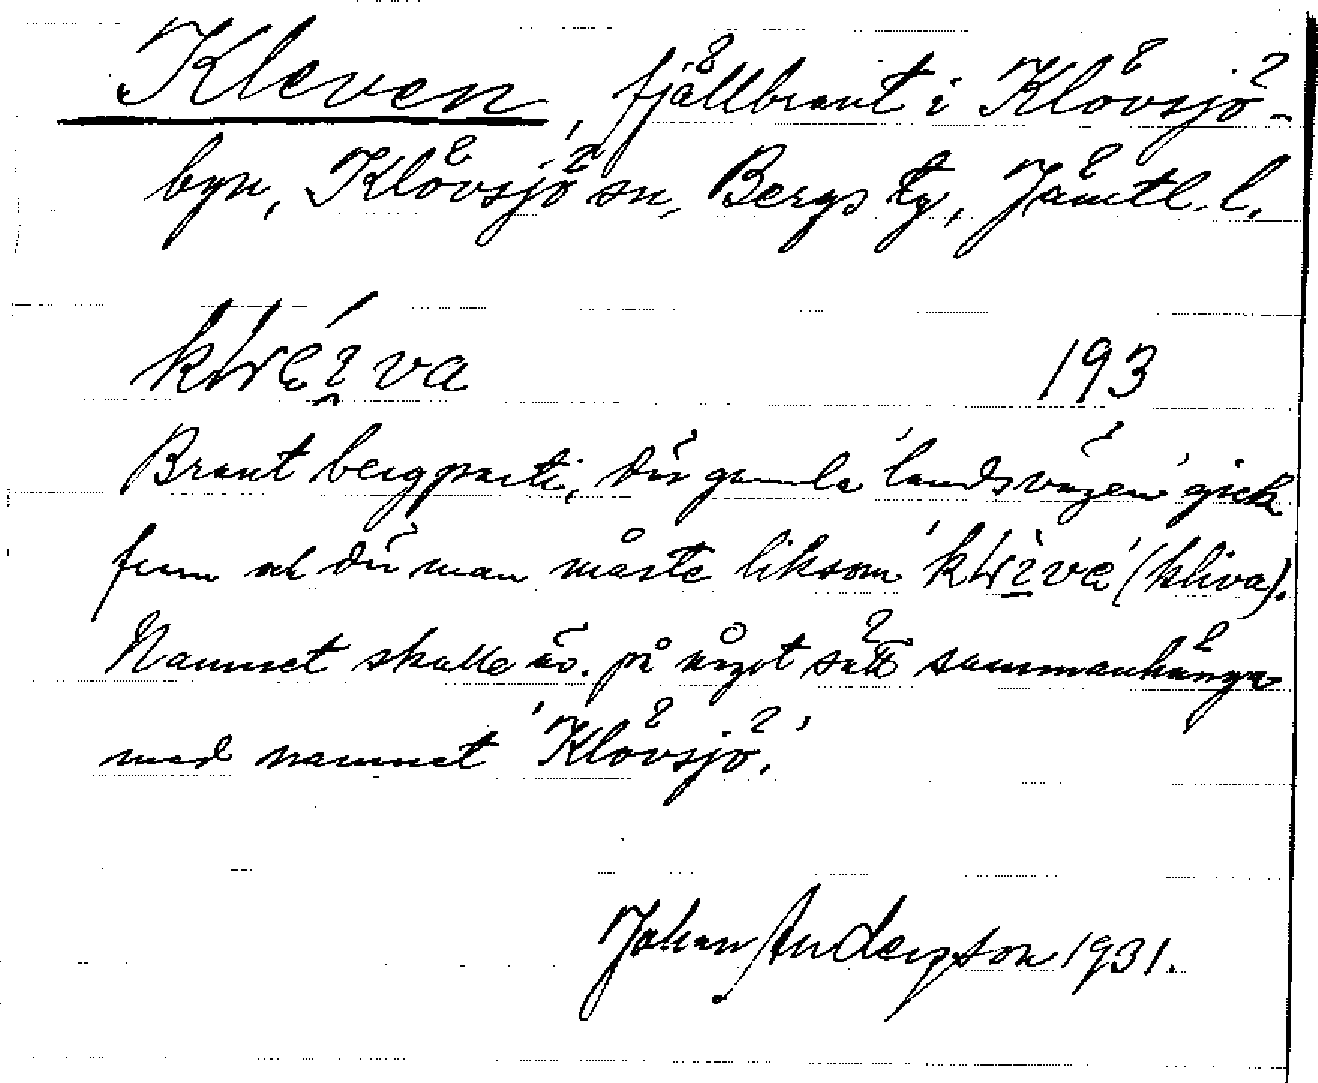 Kleven, fjällbrant i Klövsjö-
byn, Klövsjö sn, Bergs tg, Jämtl. l.
193
Brant bergparti, där gamla 'landsvägen' gick
fram och där man måste liksom (kliva).
Namnet skulle äv. på något sätt sammanhänga
med namnet 'Klövsjö.'
Johan Anderzson 1931.